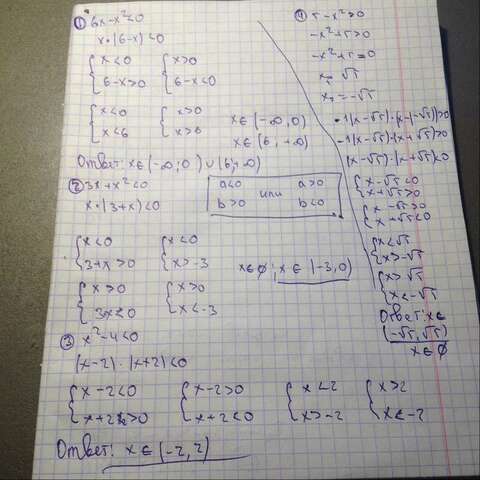 ① 6x-x²<0
x·(6-x)<0
{x<0 {x>0
{6-x>0 {6-x<0
{x<0 {x>0
{x<6 {x>6
x∈(-∞,0)
x∈(6,+∞)
Ответ: x∈(-∞;0)∪(6;+∞)
② 3x+x²<0
x·(3+x)<0
a<0 или a>0
b>0 b<0
{x<0 {x<0
{3+x>0 {x>-3
x∈∅; x∈(-3,0)
{x>0 {x>0
{3x<0 {x<-3
③ x²-4<0
(x-2)·(x+2)<0
{x-2<0 {x-2>0 {x<2 {x>2
{x+2>0 {x+2<0 {x>-2 {x<-2
Ответ: x∈(-2,2)
④ 5-x²>0
-x²+5>0
-x²+5=0
x=√5
x₂=-√5
-1(x-√5)·(x-(-√5))>0
-1(x-√5)·(x+√5)>0
(x-√5)·(x+√5)<0
{x-√5<0
{x+√5>0
{x-√5>0
{x+√5<0
{x<√5
{x>-√5
{x>√5
{x<-√5
Ответ: x∈
(-√5,√5)
x∈∅